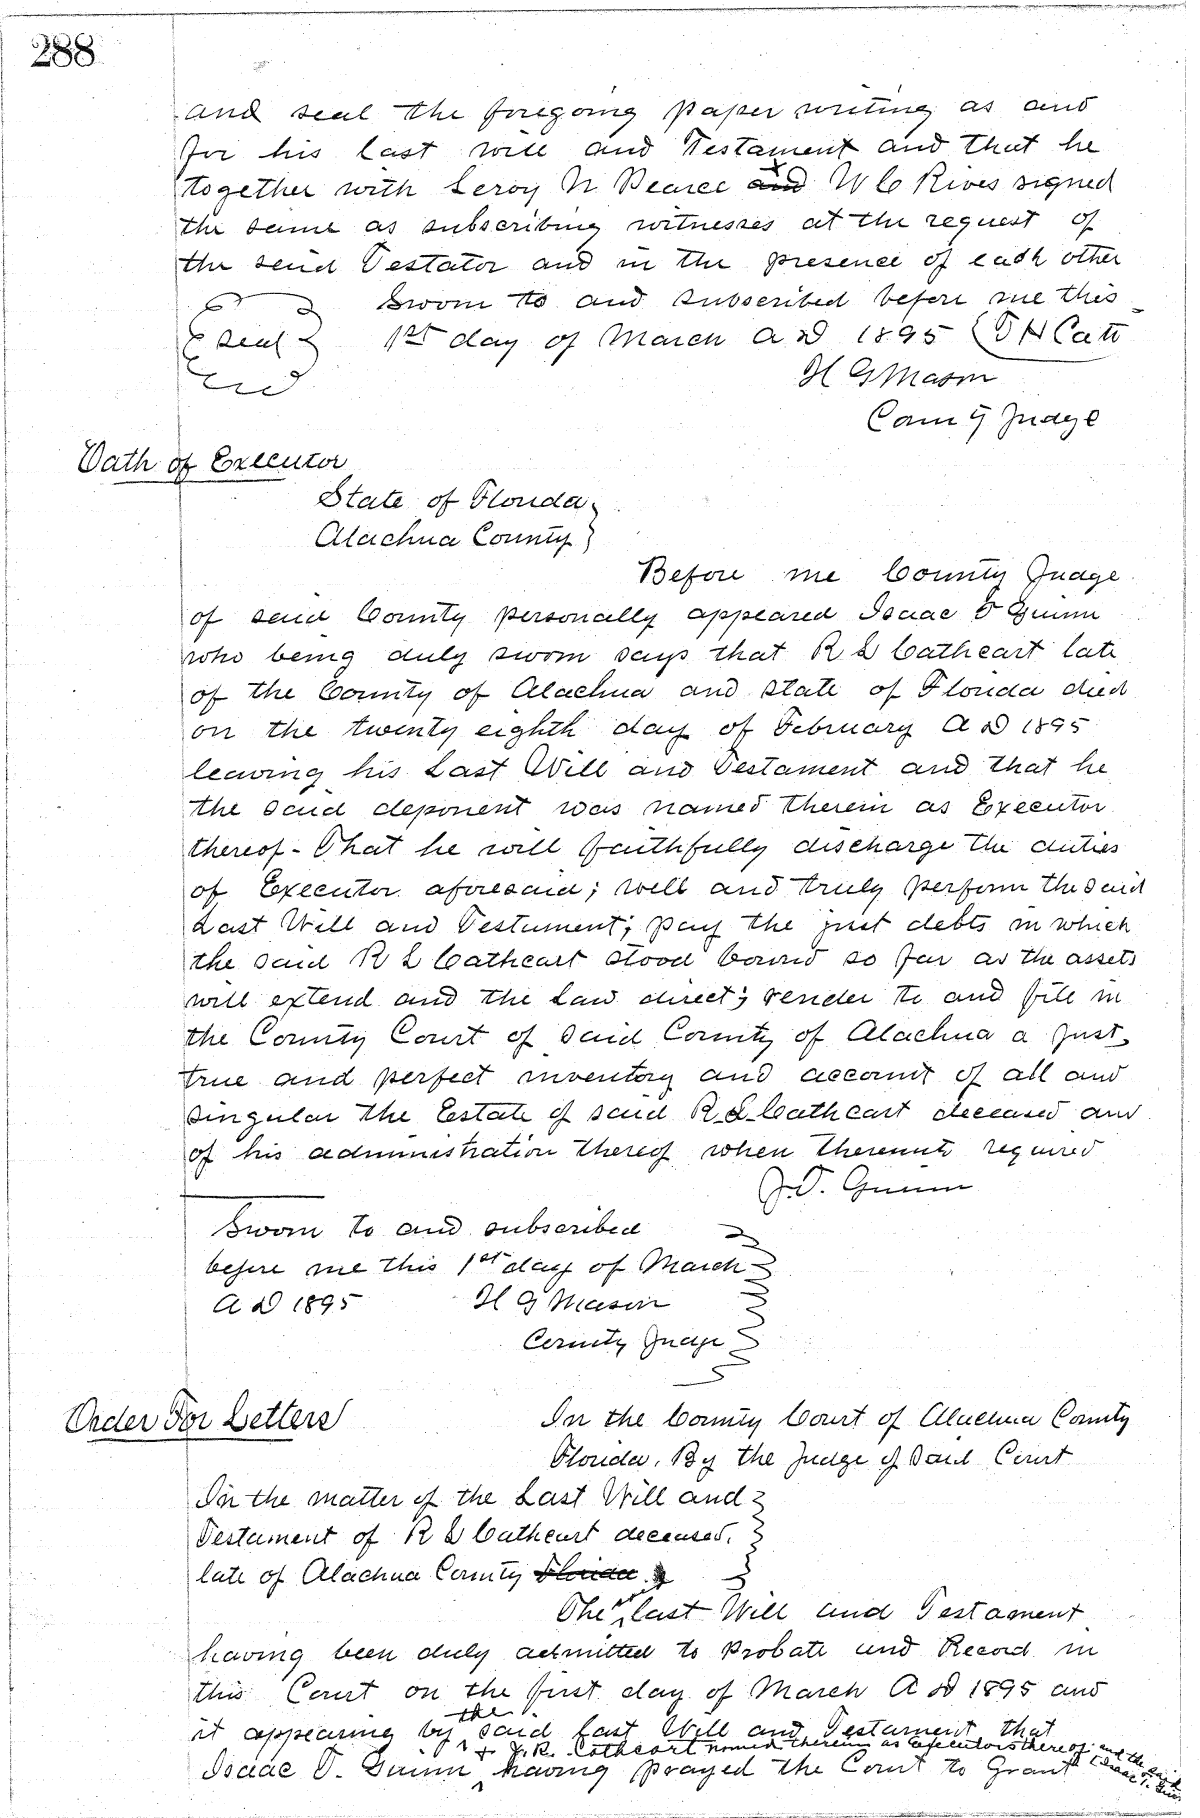 288
and seal the foregoing paper writing as and
for his last will and Testament and that he
together with Leroy N Pearce and W C Rives signed
the same as subscribing witnesses at the request of
the said Testator and in the presence of each other
Sworn to and subscribed before me this
seal 1st day of March A D 1895 T H Cato
H G Mason
County Judge
Oath of Executor
State of Florida
Alachua County
Before me County Judge
of said County personally appeared Isaac T Guinn
who being duly sworn says that R L Cathcart late
of the County of Alachua and State of Florida died
on the twenty eighth day of February A D 1895
leaving his Last Will and Testament and that he
the said deponent was named therein as Executor
thereof - That he will faithfully discharge the duties
of Executor aforesaid; well and truly perform the said
Last Will and Testament; pay the just debts in which
the said R L Cathcart stood bound so far as the assets
will extend and the Law direct; render to and file in
the County Court of said County of Alachua a just,
true and perfect inventory and account of all and
singular the Estate of said R. L. Cathcart deceased and
of his administration thereof when thereunto required
I. T. Guinn
Sworn to and subscribed
before me this 1st day of March
A D 1895 H G Mason
County Judge
Order For Letters
In the County Court of Alachua County
Florida. By the Judge of Said Court
In the matter of the Last Will and
Testament of R L Cathcart deceased.
late of Alachua County Florida.
The last Will and Testament
having been duly admitted to Probate and Record in
this Court on the first day of March A D 1895 and
it appearing by the said Last Will and Testament that
Isaac T. Guinn & J. R. Cathcart named therein as Executors thereof and the said Isaac T. Guinn having prayed the Court to Grant